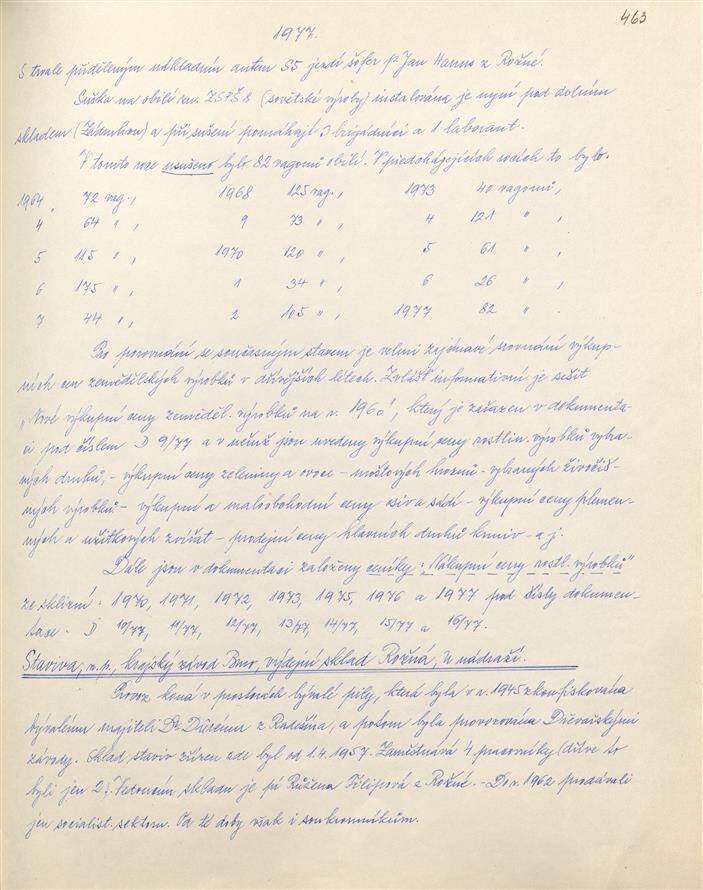 463
1977.
S trvale přiděleným nákladním autem S5 jezdí šofér p. Jan Hanus z Rožné.
Suška na obilí zn. ZSPŠ 8 (sovětské výroby) instalována je nyní pod dolním
skladem (Zádruhou) a při sušení pomáhají 3 brigádníci a 1 laborant.
V tomto roce usušeno bylo 82 vagonů obilí. V předcházejících rocích to bylo.
1964, 72 vag., 1968 125 vag., 1973 40 vagonů,
4 64 " , 9 73 " , 4 121 " ,
5 115 " , 1970 120 " , 5 61 " ,
6 175 " , 1 34 " , 6 26 " ,
7 44 " , 2 105 " , 1977 82 " .
Pro porovnání se současným stavem je velmi zajímavé srovnání výkup-
ních cen zemědělských výrobků v dřívějších letech. Zvlášť informativní je sešit
„Nové výkupní ceny zeměděl. výrobků na r. 1960", který je zařazen v dokumenta-
ci pod číslem D 9/77 a v němž jsou uvedeny výkupní ceny rostlin. výrobků vybra-
ných druhů, - výkupní ceny zeleniny a ovoce - moštových hroznů - vybraných živočiš-
ných výrobků - výkupní a maloobchodní ceny osiva sádí - výkupní ceny plemen-
ných a užitkových zvířat - prodejní ceny hlavních druhů krmiv - a j.
Dále jsou v dokumentaci založeny ceníky: „Nákupní ceny rostl. výrobků"
ze sklizní: 1970, 1971, 1972, 1973, 1975, 1976 a 1977 pod čísly dokumen-
tace: D 10/77, 11/77, 12/77, 13/77, 14/77, 15/77 a 16/77.
Staviva, n.p., krajský závod Brno, výdejní sklad Rožná, u nádraží.
Provoz koná v prostorách bývalé pily, která byla v r. 1945 zkonfiskována
bývalému majiteli Dr. Dürému z Radešína, a potom byla provozována Dřevařskými
závody. Sklad staviv zřízen zde byl od 1.4.1957. Zaměstnává 4 pracovníky (dříve to
byli jen 2). Vedoucím skladu je pí Růžena Filipová z Rožné. - Do r. 1962 prodávali
jen socialist. sektoru. Od té doby však i soukromníkům.